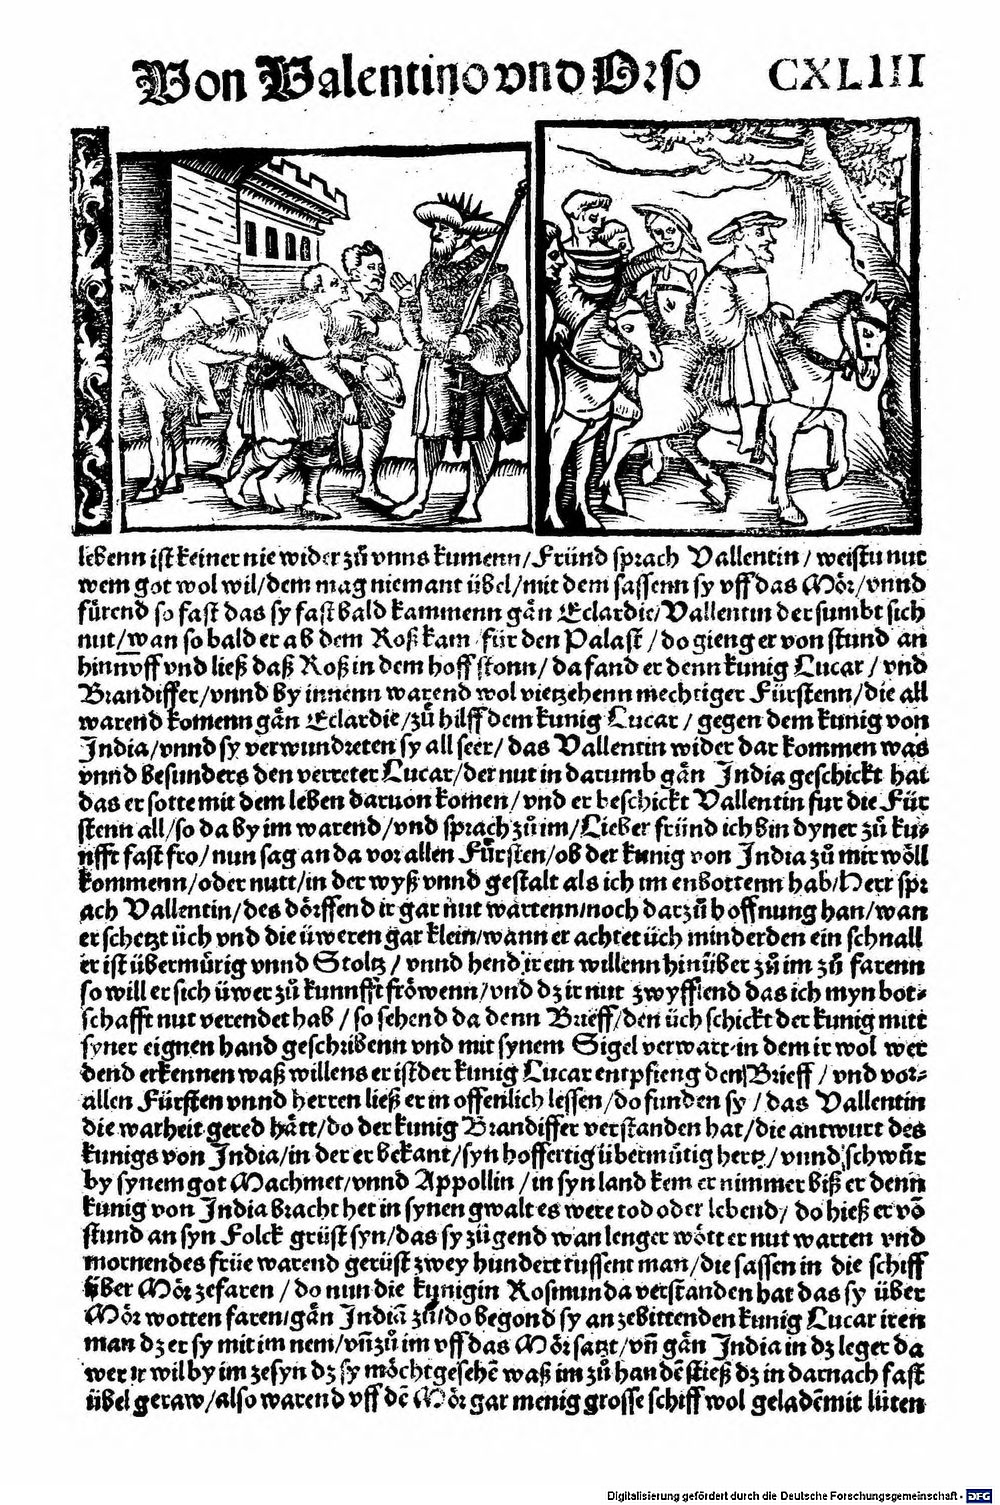 Von Valentino vnd Orso CXLIII
lebenn ist keiner nie wider zů vnns kumenn/Fründ sprach Vallentin/weistu nut
wem got wol wil/dem mag niemant übel/mit dem sassenn sy vff das Mör/vnnd
fůrend so fast das sy fast bald kammenn gån Eclardie/Vallentin der sumbt sich
nut/wan so bald er ab dem Roß kam für den Palast/do gieng er von stund an
hinnvff vnd ließ daß Roß in dem hoff stonn/da fand er denn kunig Lucar/vnd
Brandiffer/vnnd by innenn warend wol vietzehenn mechtiger Fürstenn/die all
warend komenn gån Eclardie/zů hilff dem kunig Lucar/gegen dem kunig von
India/vnnd sy verwundreten sy all seer/das Vallentin wider dar kommen was
vnnd besunders den verreter Lucar/der nut in darumb gån India geschickt hat
das er sotte mit dem leben daruon komen/vnd er beschickt Vallentin fur die Für
stenn all/so da by im warend/vnd sprach zů im/Lieber fründ ich bin dyner zů ku⸗
nfft fast fro/nun sag an da vor allen Fürsten/ob der kunig von India zů mir wöll
kommenn/oder nutt/in der wyß vnnd gestalt als ich im enbottenn hab/Herr spr
ach Vallentin/des dörffend ir gar nut wartenn/noch darzů hoffnung han/wan
er schetzt üch vnd die üweren gar klein/wann er achtet üch minder den ein schnall
er ist übermůtig vnnd Stoltz/vnnd hend ir ein willenn hinüber zů im zů farenn
so will er sich üwer zů kunnfft fröwenn/vnd dz ir nut zwyfflend das ich myn bot⸗
schafft nut verendet hab/so sehend da denn Brieff/den üch schickt der kunig mitt
syner eignen hand geschribenn vnd mit synem Sigel verwart in dem ir wol wer
dend erkennen waß willens er ist der kunig Lucar entpfieng den Brieff/vnd vor⸗
allen Fürsten vnnd herren ließ er in offenlich lessen/do funden sy/das Vallentin
die warheit gered hått/do der kunig Brandiffer verstanden hat/die antwurt des
kunigs von India/in der er bekant/syn hoffertig übermůtig hertz/vnnd schwůr
by synem got Machmet/vnnd Appollin/in syn land kem er nimmer biß er denn
kunig von India bracht het in synen gwalt es were tod oder lebend/do hieß er vō
stund an syn Folck grüst syn/das sy zügend wan lenger wött er nut warten vnd
mornendes früe warend gerüst zwey hundert tussent man/die sassen in die schiff
über Mör zefaren/do nun die kunigin Rosmunda verstanden hat das sy über
Mör wotten faren/gån Indiā zů/do begond sy an zebittenden kunig Lucar iren
man dz er sy mit im nem/vñ zů im vff das Mör satzt/vñ gån India in dz leger da
wer ir wil by im zesyn dz sy möcht gesehē waß im zů handē stieß dz in darnach fast
übel geraw/also warend vff dē Mör gar menig grosse schiff wol geladē mit lüten
Digitalisierung gefördert durch die Deutsche Forschungsgemeinschaft - DFG